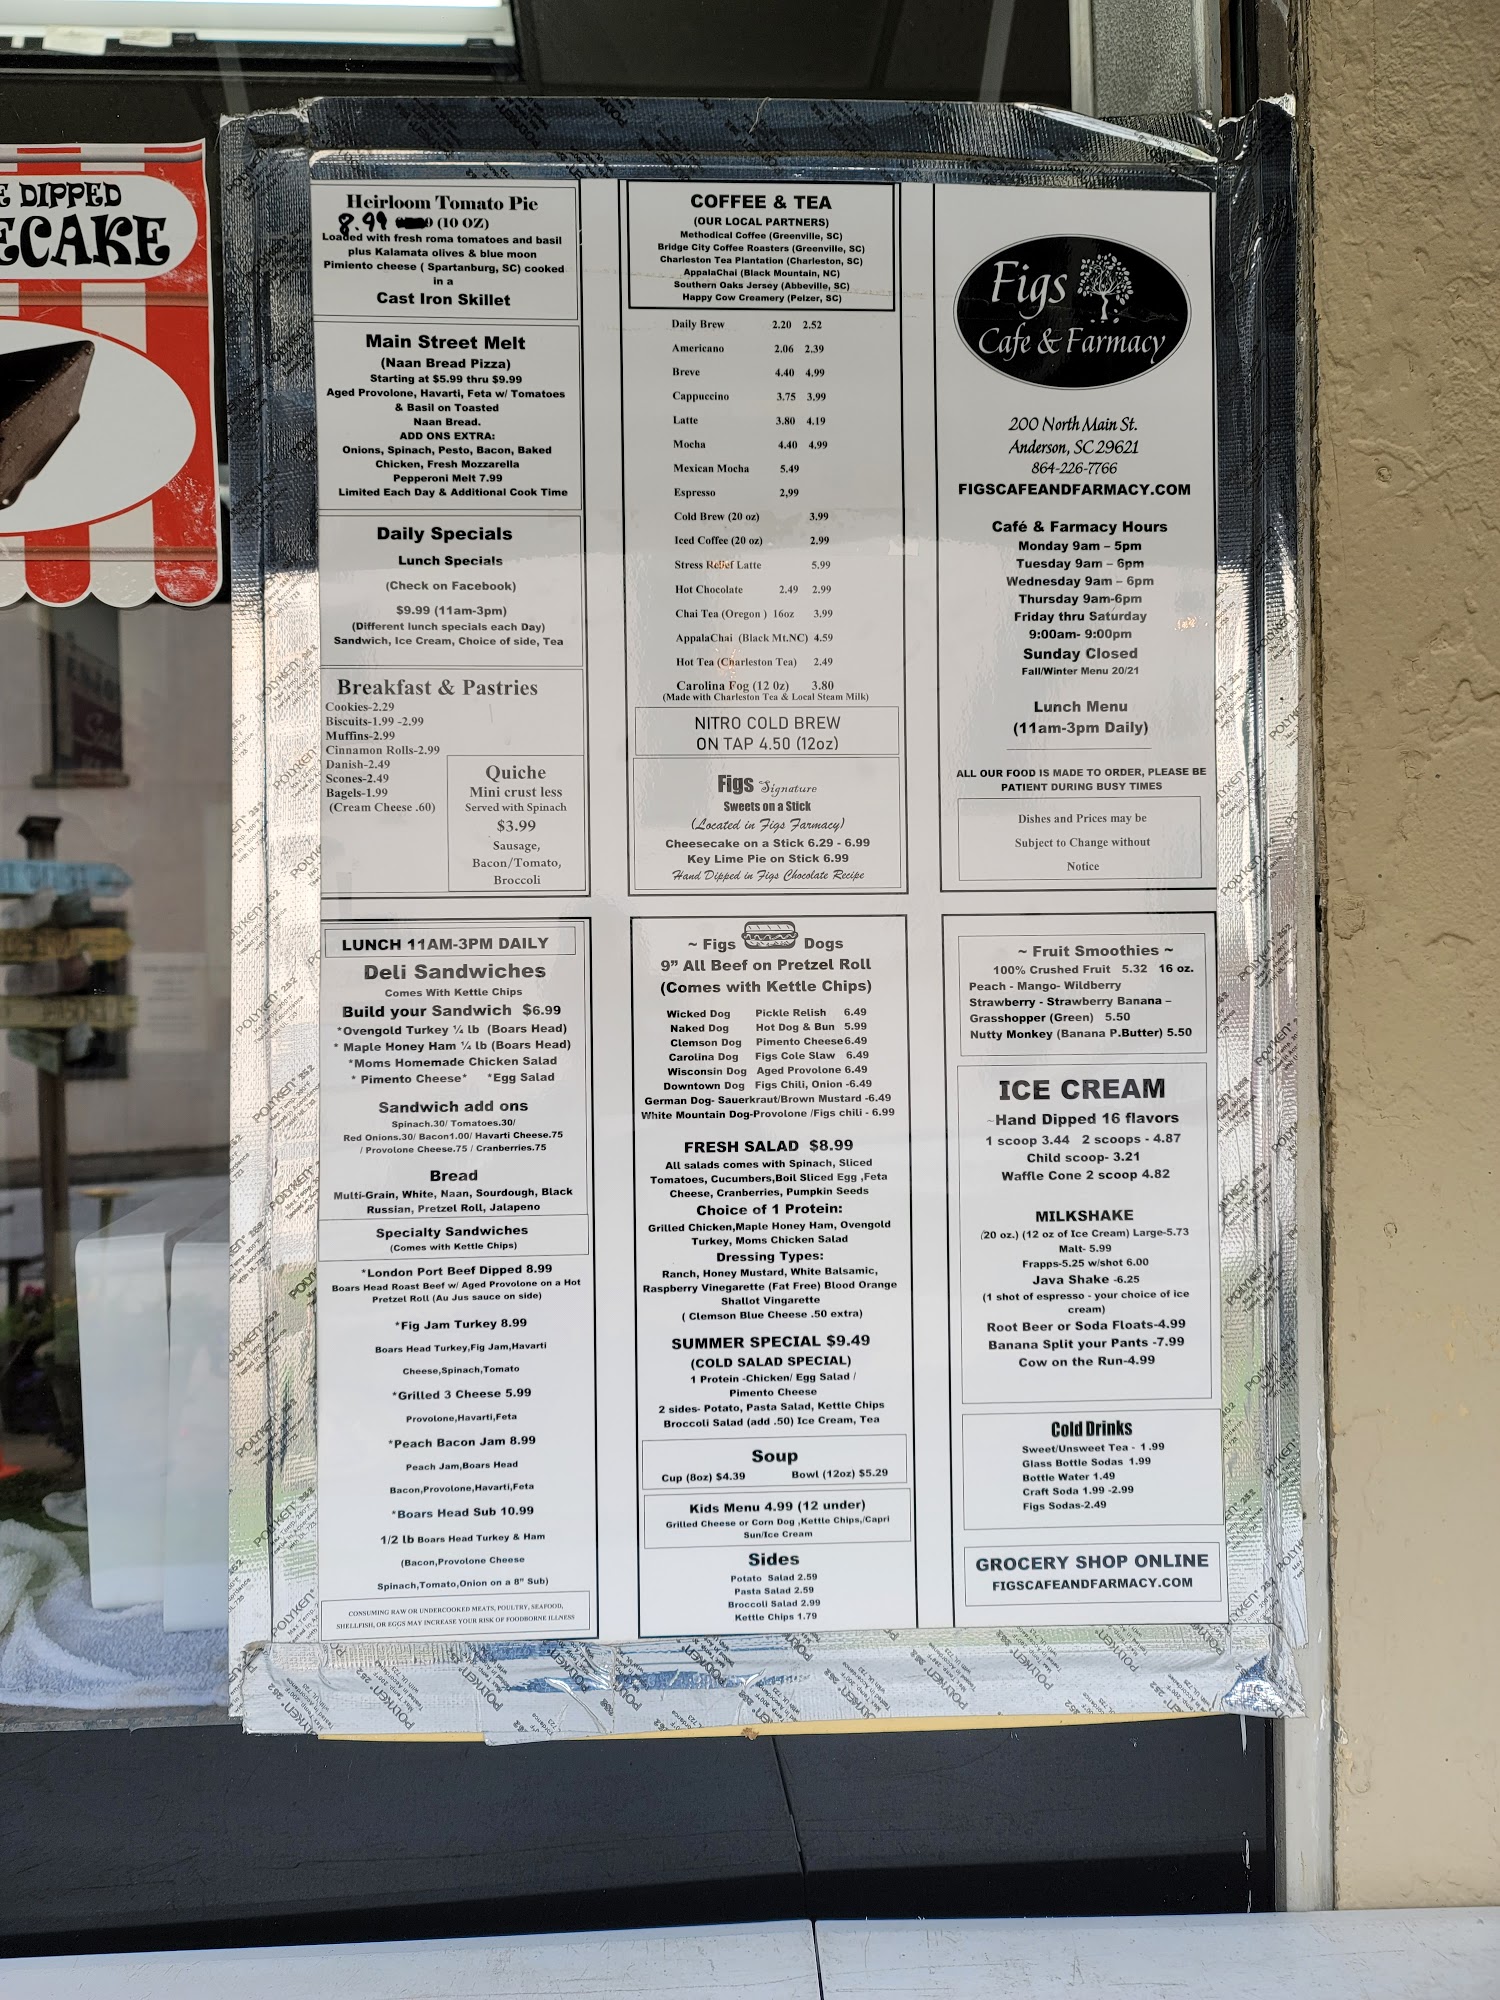 E DIPPED
ECAKE
Heirloom Tomato Pie
8.99 (10 OZ)
Loaded with fresh roma tomatoes and basil
plus Kalamata olives & blue moon
Pimiento cheese ( Spartanburg, SC) cooked
in a
Cast Iron Skillet
Main Street Melt
(Naan Bread Pizza)
Starting at $5.99 thru $9.99
Aged Provolone, Havarti, Feta w/ Tomatoes
& Basil on Toasted
Naan Bread.
ADD ONS EXTRA:
Onions, Spinach, Pesto, Bacon, Baked
Chicken, Fresh Mozzarella
Pepperoni Melt 7.99
Limited Each Day & Additional Cook Time
Daily Specials
Lunch Specials
(Check on Facebook)
$9.99 (11am-3pm)
(Different lunch specials each Day)
Sandwich, Ice Cream, Choice of side, Tea
Breakfast & Pastries
Cookies-2.29
Biscuits-1.99 -2.99
Muffins-2.99
Cinnamon Rolls-2.99
Danish-2.49
Scones-2.49
Bagels-1.99
(Cream Cheese .60)
Quiche
Mini crust less
Served with Spinach
$3.99
Sausage,
Bacon/Tomato,
Broccoli
COFFEE & TEA
(OUR LOCAL PARTNERS)
Methodical Coffee (Greenville, SC)
Bridge City Coffee Roasters (Greenville, SC)
Charleston Tea Plantation (Charleston, SC)
AppalaChai (Black Mountain, NC)
Southern Oaks Jersey (Abbeville, SC)
Happy Cow Creamery (Pelzer, SC)
Daily Brew 2.20 2.52
Americano 2.06 2.39
Breve 4.40 4.99
Cappuccino 3.75 3.99
Latte 3.80 4.19
Mocha 4.40 4.99
Mexican Mocha 5.49
Espresso 2,99
Cold Brew (20 oz) 3.99
Iced Coffee (20 oz) 2.99
Stress Relief Latte 5.99
Hot Chocolate 2.49 2.99
Chai Tea (Oregon ) 16oz 3.99
AppalaChai (Black Mt.NC) 4.59
Hot Tea (Charleston Tea) 2.49
Carolina Fog (12 0z) 3.80
(Made with Charleston Tea & Local Steam Milk)
NITRO COLD BREW
ON TAP 4.50 (12oz)
Figs Signature
Sweets on a Stick
(Located in Figs Farmacy)
Cheesecake on a Stick 6.29 - 6.99
Key Lime Pie on Stick 6.99
Hand Dipped in Figs Chocolate Recipe
Figs
Cafe & Farmacy
200 North Main St.
Anderson, SC 29621
864-226-7766
FIGSCAFEANDFARMACY.COM
Café & Farmacy Hours
Monday 9am – 5pm
Tuesday 9am – 6pm
Wednesday 9am – 6pm
Thursday 9am-6pm
Friday thru Saturday
9:00am- 9:00pm
Sunday Closed
Fall/Winter Menu 20/21
Lunch Menu
(11am-3pm Daily)
ALL OUR FOOD IS MADE TO ORDER, PLEASE BE
PATIENT DURING BUSY TIMES
Dishes and Prices may be
Subject to Change without
Notice
LUNCH 11AM-3PM DAILY
Deli Sandwiches
Comes With Kettle Chips
Build your Sandwich $6.99
*Ovengold Turkey ¼ lb (Boars Head)
* Maple Honey Ham ¼ lb (Boars Head)
*Moms Homemade Chicken Salad
* Pimento Cheese* *Egg Salad
Sandwich add ons
Spinach.30/ Tomatoes.30/
Red Onions.30/ Bacon1.00/ Havarti Cheese.75
/ Provolone Cheese.75 / Cranberries.75
Bread
Multi-Grain, White, Naan, Sourdough, Black
Russian, Pretzel Roll, Jalapeno
Specialty Sandwiches
(Comes with Kettle Chips)
*London Port Beef Dipped 8.99
Boars Head Roast Beef w/ Aged Provolone on a Hot
Pretzel Roll (Au Jus sauce on side)
*Fig Jam Turkey 8.99
Boars Head Turkey,Fig Jam,Havarti
Cheese,Spinach,Tomato
*Grilled 3 Cheese 5.99
Provolone,Havarti,Feta
*Peach Bacon Jam 8.99
Peach Jam,Boars Head
Bacon,Provolone,Havarti,Feta
*Boars Head Sub 10.99
1/2 lb Boars Head Turkey & Ham
(Bacon,Provolone Cheese
Spinach,Tomato,Onion on a 8" Sub)
CONSUMING RAW OR UNDERCOOKED MEATS, POULTRY, SEAFOOD,
SHELLFISH, OR EGGS MAY INCREASE YOUR RISK OF FOODBORNE ILLNESS
~ Figs Dogs
9” All Beef on Pretzel Roll
(Comes with Kettle Chips)
Wicked Dog Pickle Relish 6.49
Naked Dog Hot Dog & Bun 5.99
Clemson Dog Pimento Cheese6.49
Carolina Dog Figs Cole Slaw 6.49
Wisconsin Dog Aged Provolone 6.49
Downtown Dog Figs Chili, Onion -6.49
German Dog- Sauerkraut/Brown Mustard -6.49
White Mountain Dog-Provolone /Figs chili - 6.99
FRESH SALAD $8.99
All salads comes with Spinach, Sliced
Tomatoes, Cucumbers,Boil Sliced Egg ,Feta
Cheese, Cranberries, Pumpkin Seeds
Choice of 1 Protein:
Grilled Chicken,Maple Honey Ham, Ovengold
Turkey, Moms Chicken Salad
Dressing Types:
Ranch, Honey Mustard, White Balsamic,
Raspberry Vinegarette (Fat Free) Blood Orange
Shallot Vingarette
( Clemson Blue Cheese .50 extra)
SUMMER SPECIAL $9.49
(COLD SALAD SPECIAL)
1 Protein -Chicken/ Egg Salad /
Pimento Cheese
2 sides- Potato, Pasta Salad, Kettle Chips
Broccoli Salad (add .50) Ice Cream, Tea
Soup
Cup (8oz) $4.39 Bowl (12oz) $5.29
Kids Menu 4.99 (12 under)
Grilled Cheese or Corn Dog ,Kettle Chips,/Capri
Sun/Ice Cream
Sides
Potato Salad 2.59
Pasta Salad 2.59
Broccoli Salad 2.99
Kettle Chips 1.79
~ Fruit Smoothies ~
100% Crushed Fruit 5.32 16 oz.
Peach - Mango- Wildberry
Strawberry - Strawberry Banana –
Grasshopper (Green) 5.50
Nutty Monkey (Banana P.Butter) 5.50
ICE CREAM
~Hand Dipped 16 flavors
1 scoop 3.44 2 scoops - 4.87
Child scoop- 3.21
Waffle Cone 2 scoop 4.82
MILKSHAKE
(20 oz.) (12 oz of Ice Cream) Large-5.73
Malt- 5.99
Frapps-5.25 w/shot 6.00
Java Shake -6.25
(1 shot of espresso - your choice of ice
cream)
Root Beer or Soda Floats-4.99
Banana Split your Pants -7.99
Cow on the Run-4.99
Cold Drinks
Sweet/Unsweet Tea - 1.99
Glass Bottle Sodas 1.99
Bottle Water 1.49
Craft Soda 1.99 -2.99
Figs Sodas-2.49
GROCERY SHOP ONLINE
FIGSCAFEANDFARMACY.COM
POLYKEN® 252